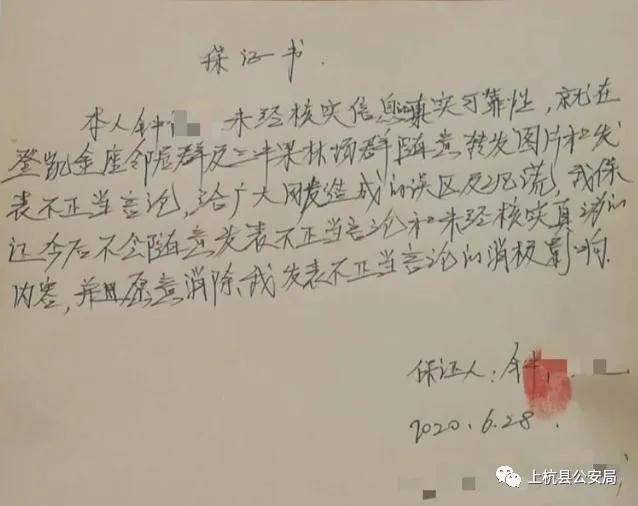 保证书.
本人钟 未经核实信息真实可靠性，就在
登凯金座邻居群及二牛果林场群随意转发图片和发
表不正当言论，给广大网友造成的误区及恐慌，我保
证今后不会随意发表不正当言论和未经核实真实的
内容，并且愿意消除我发表不正当言论的消极影响.
保证人：钟
2020.6.28.
上杭县公安局